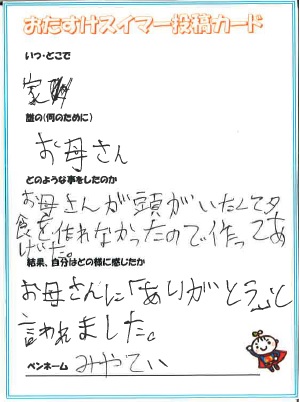 おたすけスイマー投稿カード
いつ・どこで
家
誰の(何のために)
お母さん
どのような事をしたのか
お母さんが頭がいたくて夕
食を作れなかったので作ってあ
げた。
結果、自分はどの様に感じたか
お母さんに「ありがとう」と
言われました。
ペンネーム みやてぃ